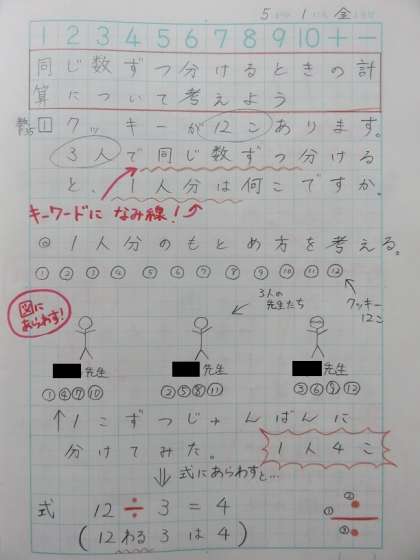 5 1 金
1 2 3 4 5 6 7 8 9 10 + −
同じ数ずつ分けるときの計
算について考えよう
1 クッキーが12こあります。
3人で同じ数ずつ分ける
と、1人分は何こですか。
キーワードに なみ線!
◎1人分のもとめ方を考える。
① ② ③ ④ ⑤ ⑥ ⑦ ⑧ ⑨ ⑩ ⑪ ⑫
クッキー
12こ
図に
あらわす!
3人の
先生たち
先生 先生 先生
①④⑦⑩ ②⑤⑧⑪ ③⑥⑨⑫
↑1こずつじゅんばんに
分けてみた。 1人4こ
⇓ 式にあらわすと…
式 12 ÷ 3 = 4
(12 わる 3 は 4)
① ② ③